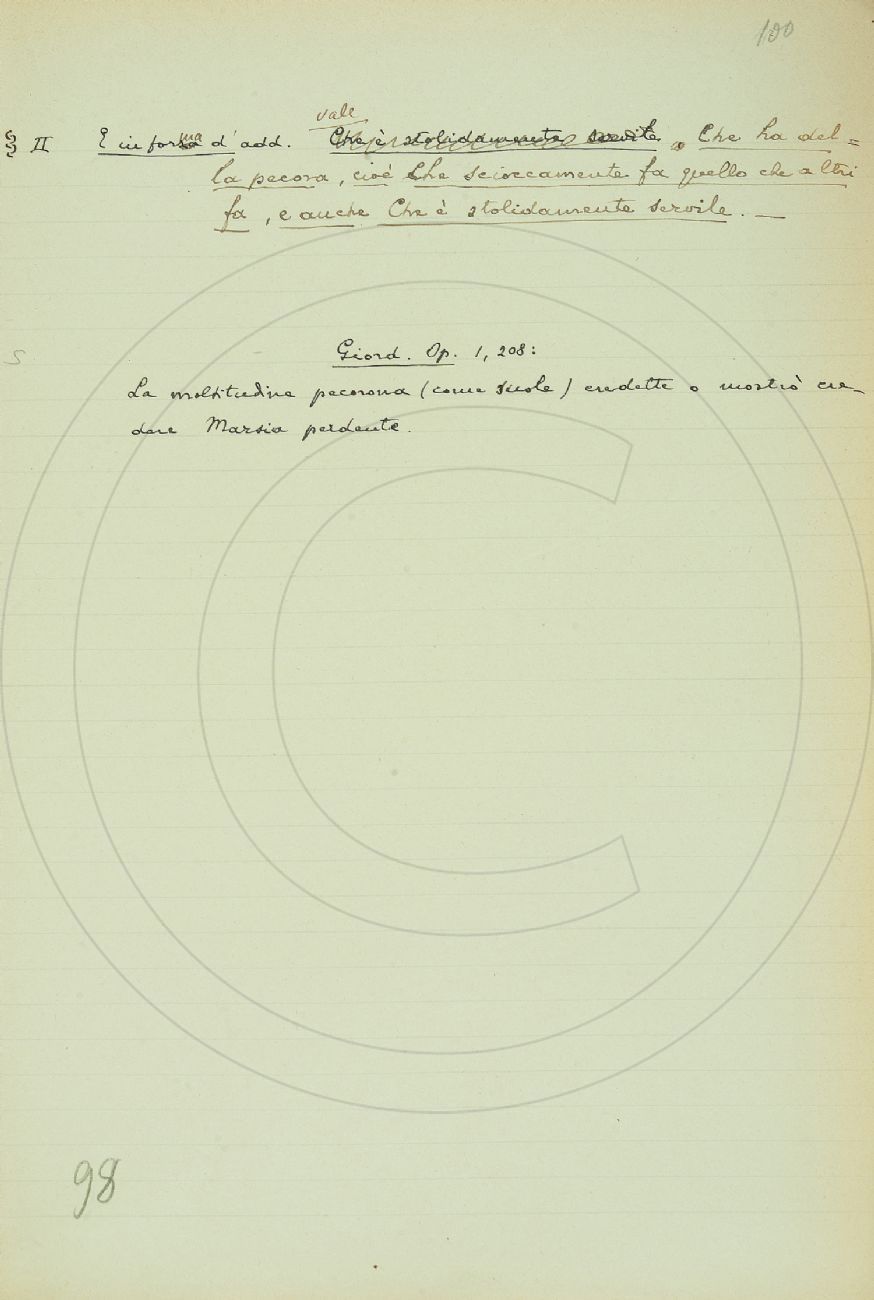 100
vale
§ II E in forma d'add. Che è stolidamente servile Che ha del=
la pecora, cioè Che scioccamente fa quello che altri
fa, e anche Che è stolidamente servile. —
S
Giord. Op. 1, 208:
La moltitudine pecorona (come suole) credette o mostrò cre-
dere Marsia perdente.
98